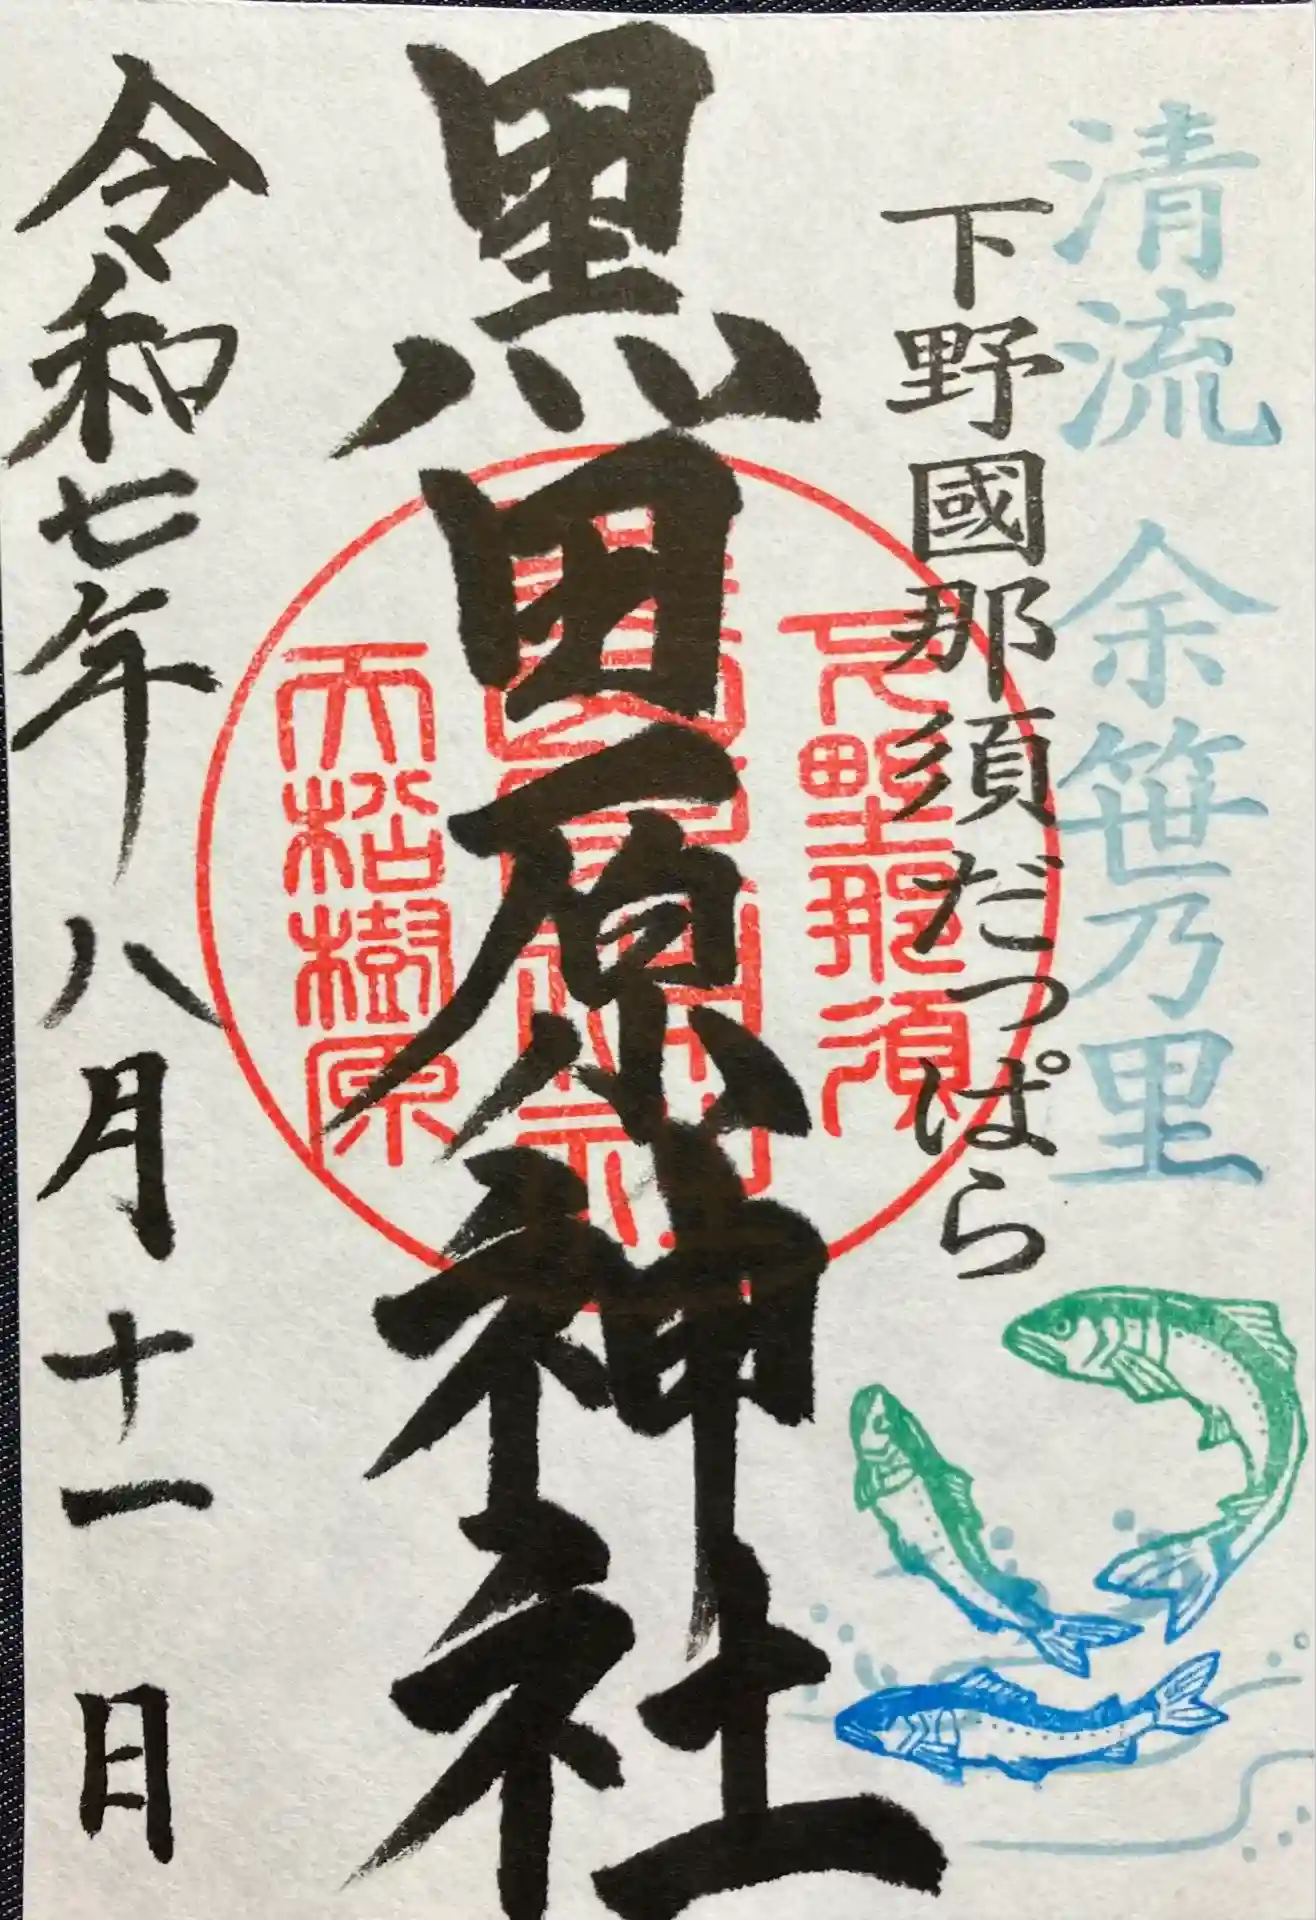 清流 余笹乃里
下野國那須だっぱら
黒田原神社
下野那須
大松樹原
令和七年八月十一日